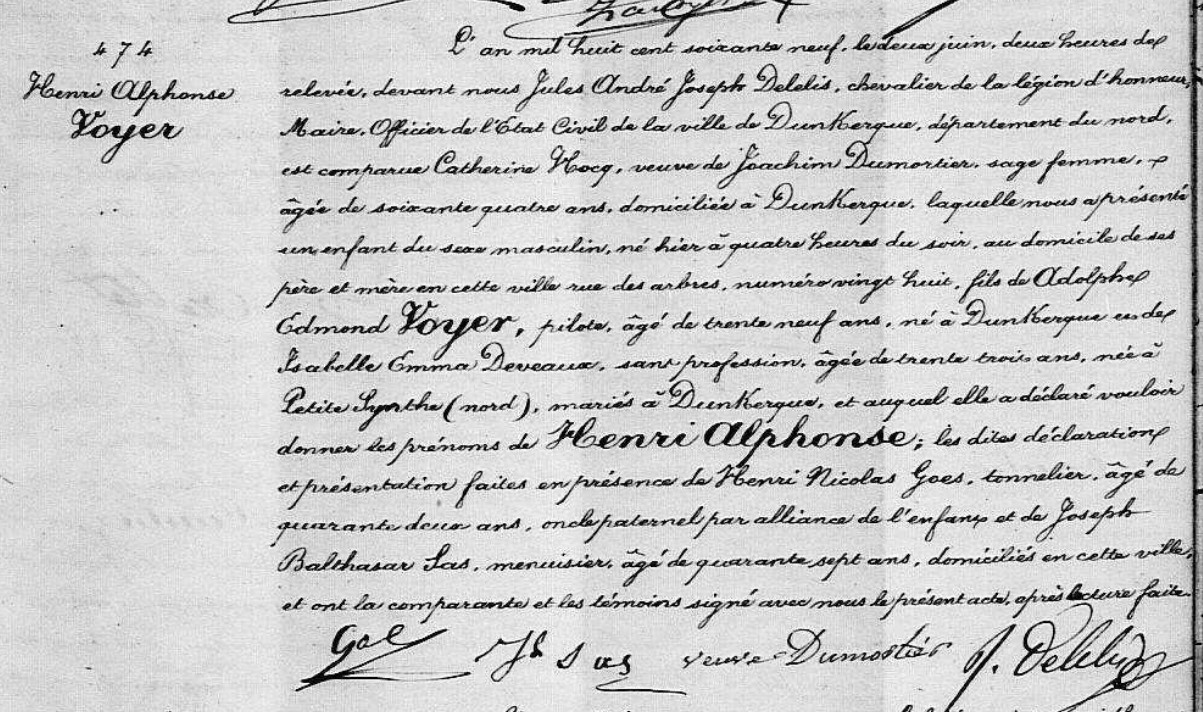 474
Henri Alphonse
Voyer
L'an mil huit cent soixante neuf, le deux juin, deux heures de
relevée, devant nous Jules André Joseph Delelis, chevalier de la légion d'honneur,
Maire, Officier de l'Etat Civil de la ville de Dunkerque, département du nord,
est comparue Catherine Hocq, veuve de Joachim Dumortier, sage femme,
âgée de soixante quatre ans, domiciliée à Dunkerque, laquelle nous a présenté
un enfant du sexe masculin, né hier à quatre heures du soir, au domicile de ses
père et mère en cette ville rue des arbres, numéro vingt huit, fils de Adolphe
Edmond Voyer, pilote, âgé de trente neuf ans, né à Dunkerque et de
Isabelle Emma Deveaux, sans profession, âgée de trente trois ans, née à
Petite Synthe (nord), mariés à Dunkerque, et auquel elle a déclaré vouloir
donner les prénoms de Henri Alphonse; les dites déclaration
et présentation faites en présence de Henri Nicolas Goes, tonnelier, âgé de
quarante deux ans, oncle paternel par alliance de l'enfant et de Joseph
Balthasar Sas, menuisier, âgé de quarante sept ans, domiciliés en cette ville,
et ont la comparante et les témoins signé avec nous le présent acte, après lecture faite.
Goes Jh Sas veuve Dumortier J. Delelis